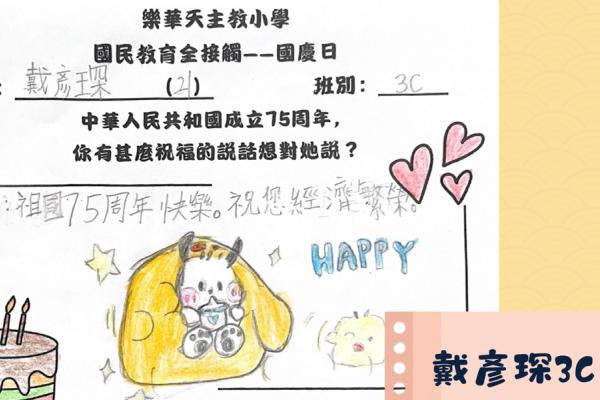 樂華天主教小學
國民教育全接觸——國慶日
: 戴彥琛 (21) 班別： 3C
中華人民共和國成立75周年，
你有甚麼祝福的説話想對她説？
：祖國75周年快樂。祝您經濟繁榮。
HAPPY
戴彥琛3C